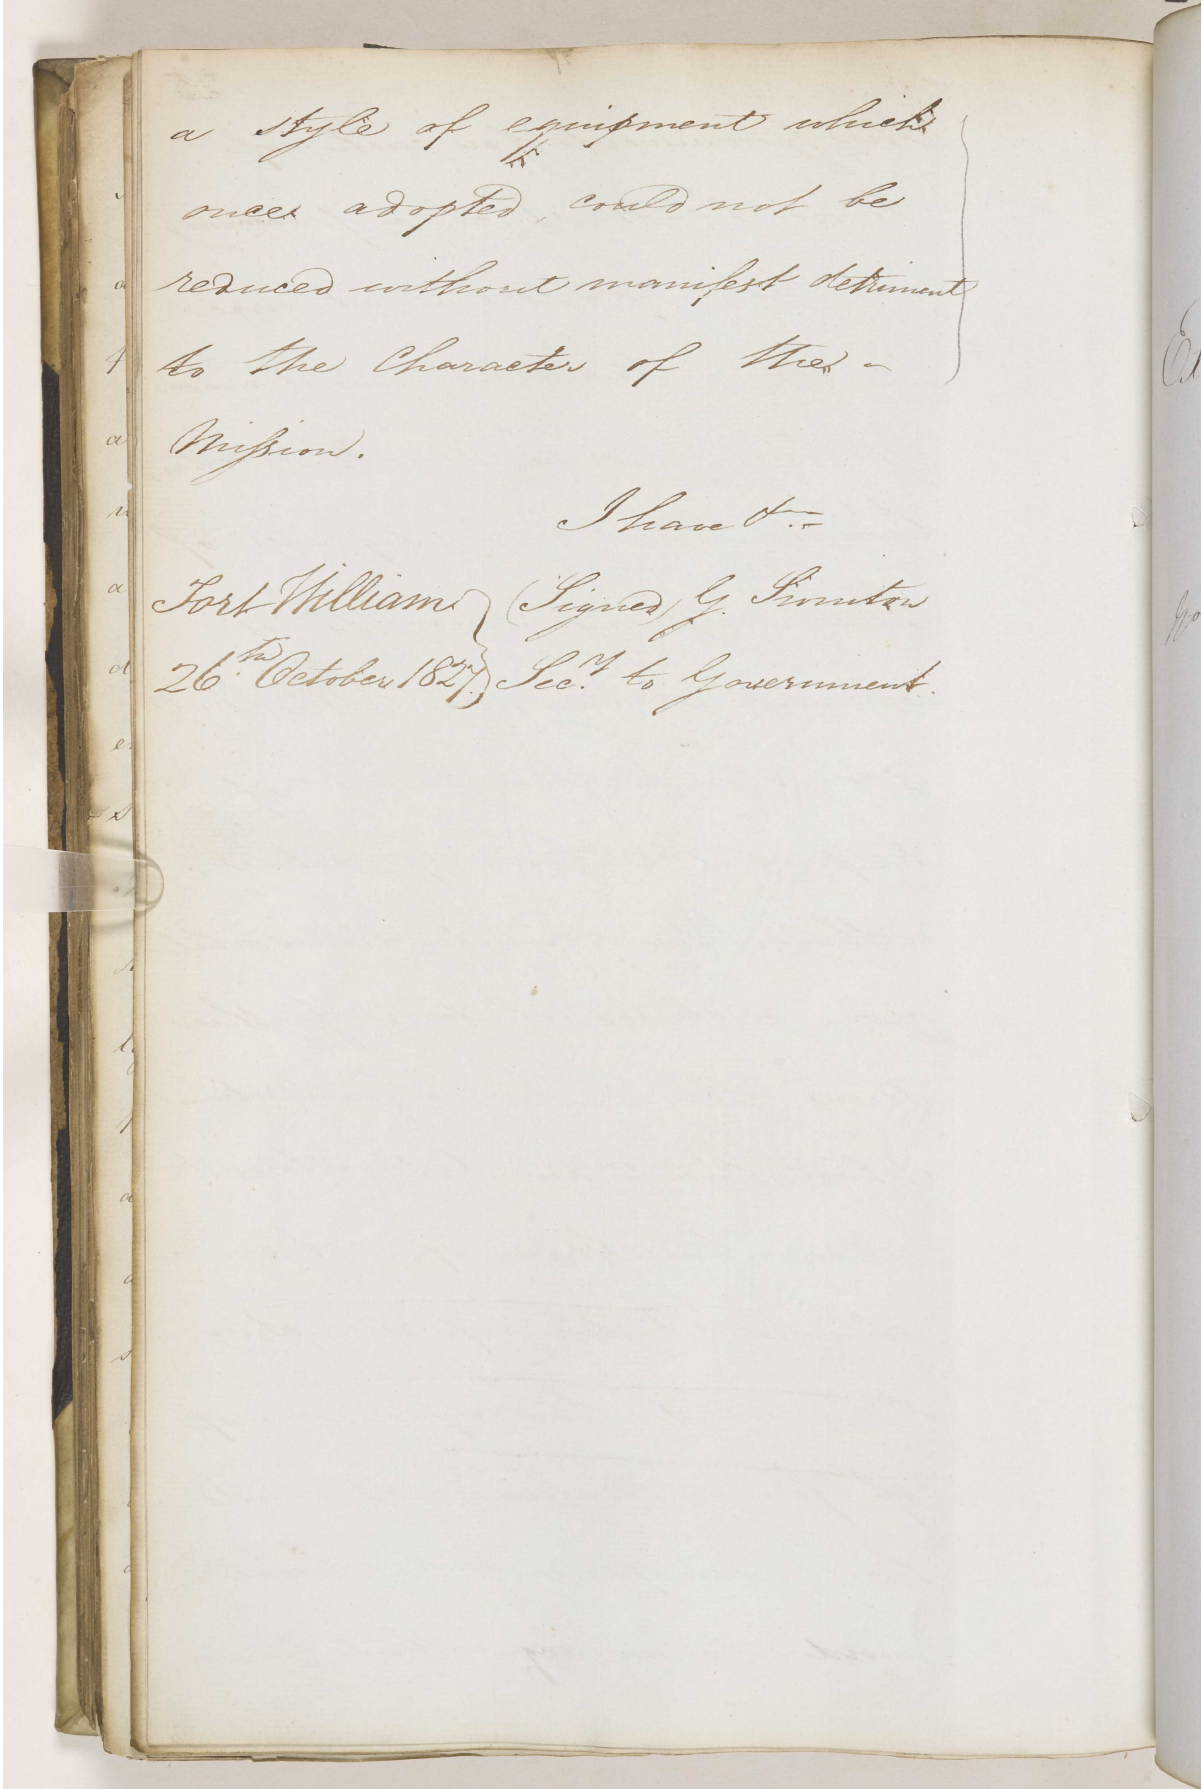 a style of equipment which
once adopted, could not be
reduced without manifest detriment
to the Character of the -
Mission.
I have &c.
Fort William (Signed) G. Swinton
26th October 1827. Secy. to Government.